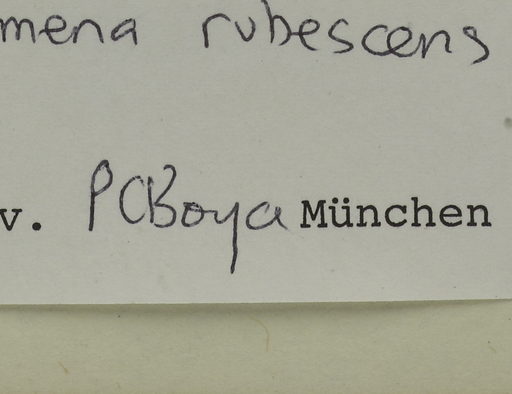 mena rubescens
v. PCBoya München